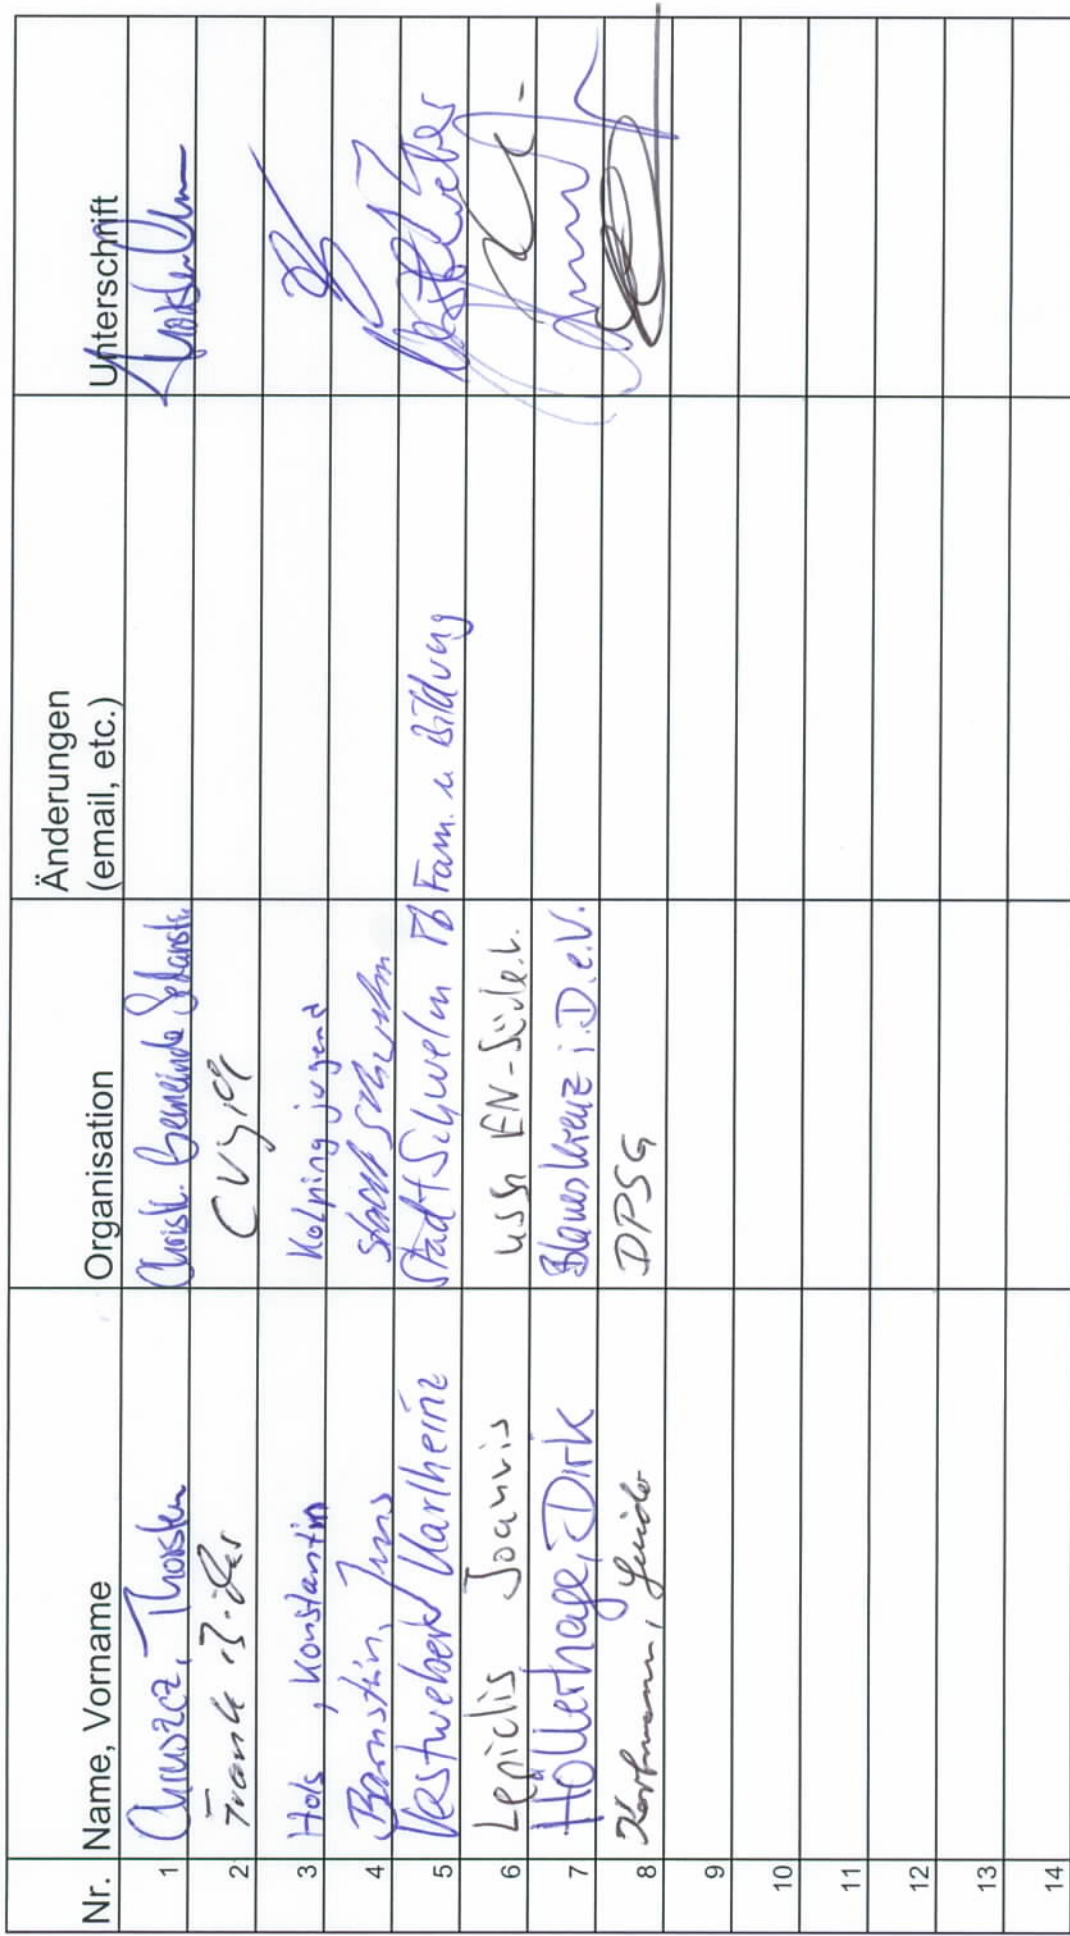 Nr. Name, Vorname Organisation Änderungen (email, etc.) Unterschrift
1 Thorsten Christl. Gemeinde
2 Frank CVJM
3 Hols, Konstantin Kolpingjugend
4 Stadt Schwelm
5 Vestweber Karlheinz Stadt Schwelm FB Fam. u Bildung
6 Lepidis Joannis EN-Süd e.V.
7 Höllerhage, Dirk Blaues Kreuz i.D. e.V.
8 Guido DPSG
9
10
11
12
13
14